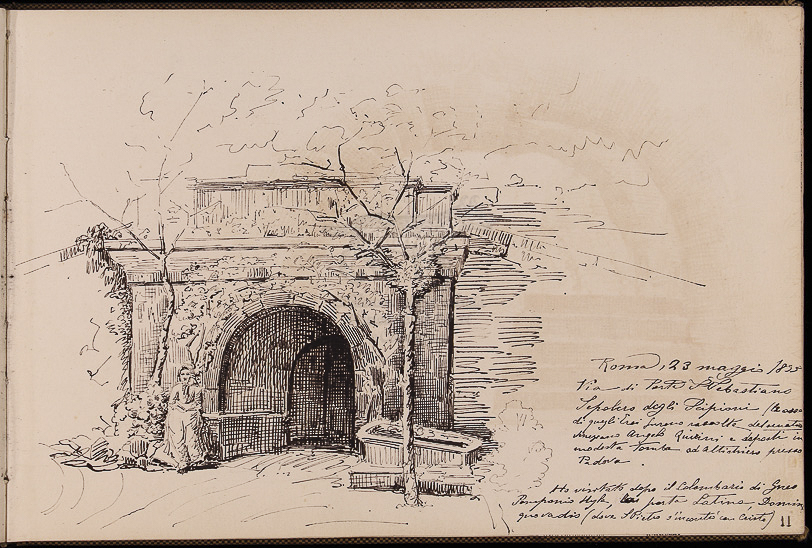 Roma, 23 maggio 18
Via di Porta S. Sebastiano
Sepolcro degli Scipioni (le ossa
di quegli eroi furono raccolte dal senatore
Angelo Quirini e deposti in
modesta tomba ad Altichiero presso
Padova.
Ho visitato dopo il Colombario di Gneo
Pomponio Hyla, la porta Latina, Domine
quovadis (dove S. Pietro s'incontrò con Cristo)
11